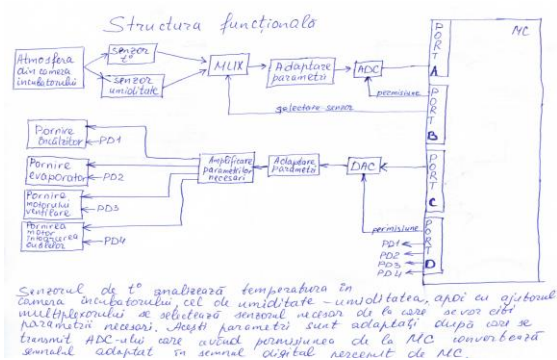 Structura funcțională
MC
Atmosfera
din camera
incubatorului
senzor
t°
senzor
umiditate
MUX
Adaptare
parametri
ADC
PORT
A
permisiune
selectare senzor
PORT
B
Pornire
încălzitor
PD1
Pornire
evaporator
PD2
Pornirea
motorului
ventilare
PD3
Pornirea
motor
întoarcerea
ouălelor
PD4
Amplificare
parametrilor
necesari
Adaptare
parametri
DAC
PORT
C
permisiune
PORT
D
PD1
PD2
PD3
PD4
Senzorul de t° analizează temperatura în
camera incubatorului, cel de umiditate - umiditatea, apoi cu ajutorul
multiplexorului se selectează senzorul necesar de la care se vor citi
parametrii necesari. Acești parametri sunt adaptați după care se
transmit ADC-ului care având permisiunea de la MC convertează
semnalul adaptat în semnal digital perceput de MC.